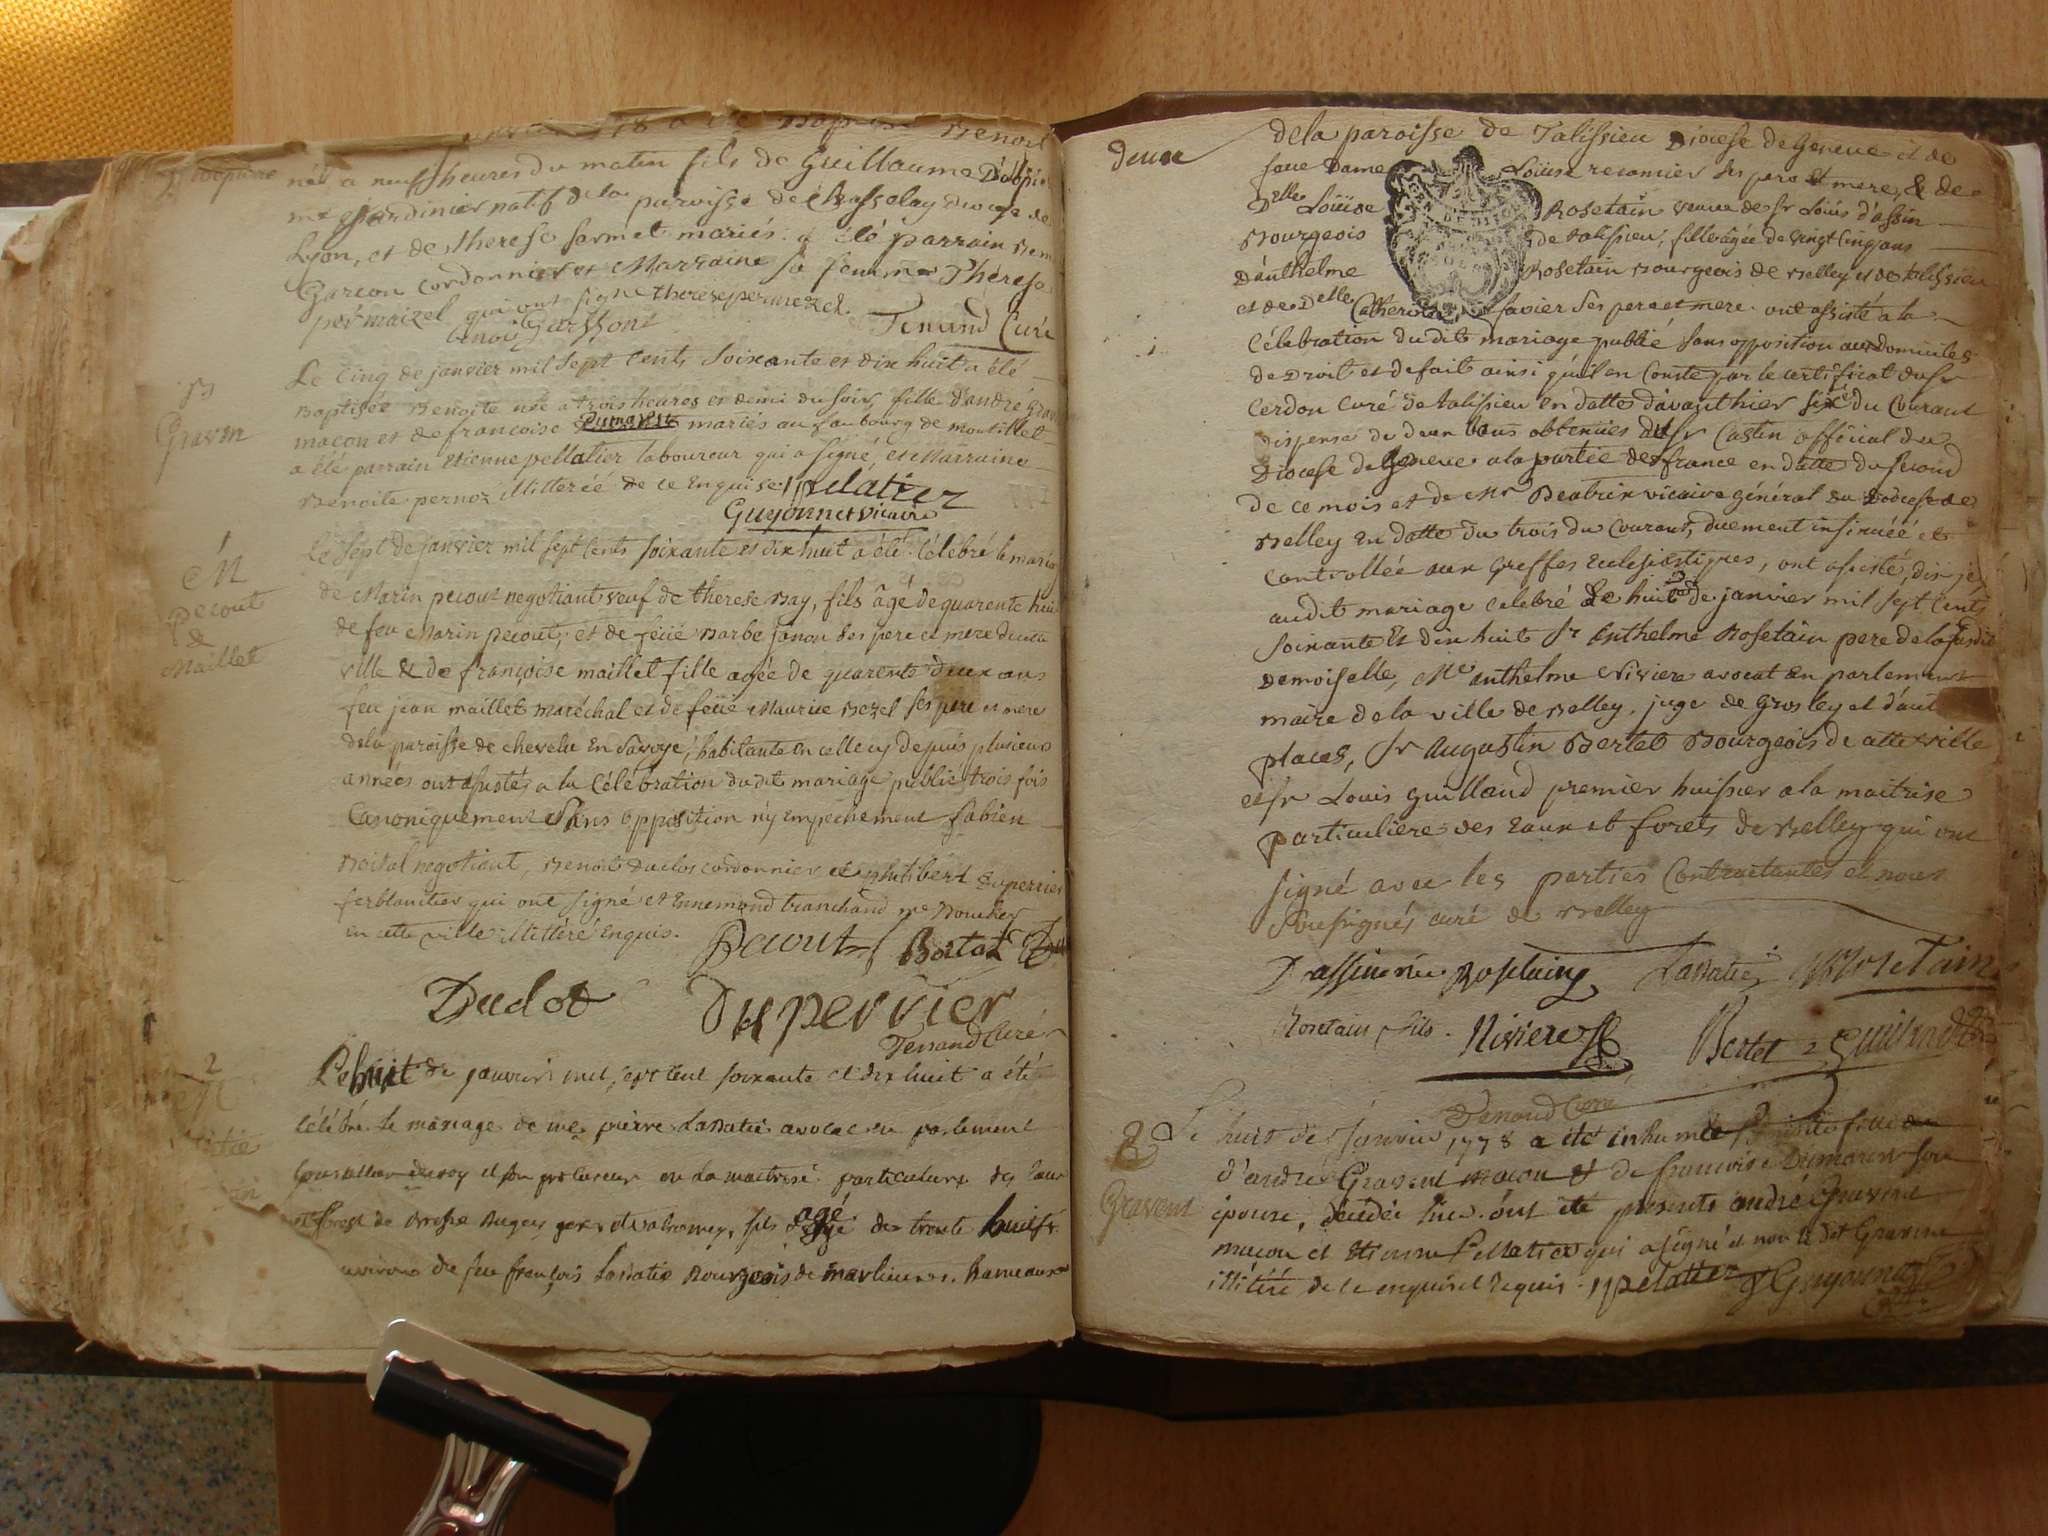 né a neuf heures du matin fils de Guillaume
me jardinier natif de la paroisse de Chasselay diocese de
Lyon, et de therese sarmet mariés. a été parrain
Garcon cordonnier et Marraine sa femme Thérese
permaizel qui ont signé therese permezel
benoit garssont Tenand Curé
B
Graven
Le cinq de janvier mil sept cents soixante et dix huit a été
Baptisée Benoite née a trois heures et demi du soir, fille d'andré
macon et de francoise Dumarest mariés au faubourg de montillet
a été parrain Etienne pellatier laboureur qui a signé, et Marraine
Benoite pernoz illitterée de ce Enquise. pelatier
Guyonnet vicaire
1
M
Pecout
&
Maillet
Le sept de janvier mil sept cents soixante et dix huit a été célebré le mariage
de Marin pecout negotiant veuf de therese Bay, fils âgé de quarente huit
de feu Marin Pecout, et de feüe Barbe janon ses pere et mere
ville & de françoise maillet fille agée de quarente deux ans
feu jean maillet maréchal et de feüe Maurice Bezel ses pere et mere
dela paroisse de chevelu en savoye, habitante en celle cy depuis plusieurs
années ont assistés a la célébration dudit mariage publié trois fois
Canoniquement sans opposition ny empechement fabien
Boital negotiant, Benoit duclos cordonnier et philibert Duperrier
ferblantier qui ont signé et Ennemond tranchand me Boucher
en cette ville illittéré enquis. Pecout Boital
Duclos Duperrier
Tenand Curé
2
M
Le huit de janvier mil sept cent soixante et dix huit a été
célébré le mariage de me pierre Labatie avocat en parlement
Conseiller du roy et son procureur en la maitrise particuliere des eaux
et forest de Bresse Bugey gex et valromey, fils agé de trente huit
environs de feu françois Labatie Bourgeois de marlieu hameau
deux
dela paroisse de Talissieu Diocese de Geneve et de
feue Dame Loüise recamier ses pere et mere, & de
Delle Loüise Rosetain veuve de sr Loüis d'assin
Bourgeois de talissieu, fille âgée de vingt cinq ans
D'anthelme Rosetain Bourgeois de Belley et de talissieu
et de Delle Catherine favier ses pere et mere. ont assisté a la
Célebration dudit mariage publié sans opposition aux domiciles
de Droit et de fait ainsi qu'il en Conste par le certificat du sr
Cerdon curé de talissieu en datte d'avanthier six du Courant
dispense de deux bans obtenües du sr Castin official du
Diocese de Geneve a la partie de france en datte du second
de ce mois et de Mr Beatrix vicaire général du Diocese de
Belley en datte du trois du Courant, duement insinuéé et
Controllée aux Greffes Eclesiastiques, ont assisté, dis-je,
audit mariage celebré Le huit de janvier mil sept Cents
soixante et dix huit sr Anthelme Rosetain pere de la susdite
Demoiselle, Me anthelme Riviere avocat en parlement
maire de la ville de Belley, juge de Grosley et d'autres
places, sr Augustin Bertet Bourgeois de cette ville
et sr Louis guilland premier huissier a la maitrise
particuliere des Eaux et forets de Belley qui ont
signé avec les parties Contractantes et nous
soussignés curé de Belley
D'assin née Rosetaing Labatie Rosetain
Rosetain fils. Riviere Bertet Guilland
Tenand Cure
Gravent
Le huit de Janvier 1778 a été inhumée Benoite fille
d'andré Gravent macon et de françoise Dumarest son
épouse, décédée hier. ont été présents andré Gravent
macon et Etienne Pellatier qui a signé et non le dit Gravent
illitéré de ce enquis et requis. pelatier Guyonnet